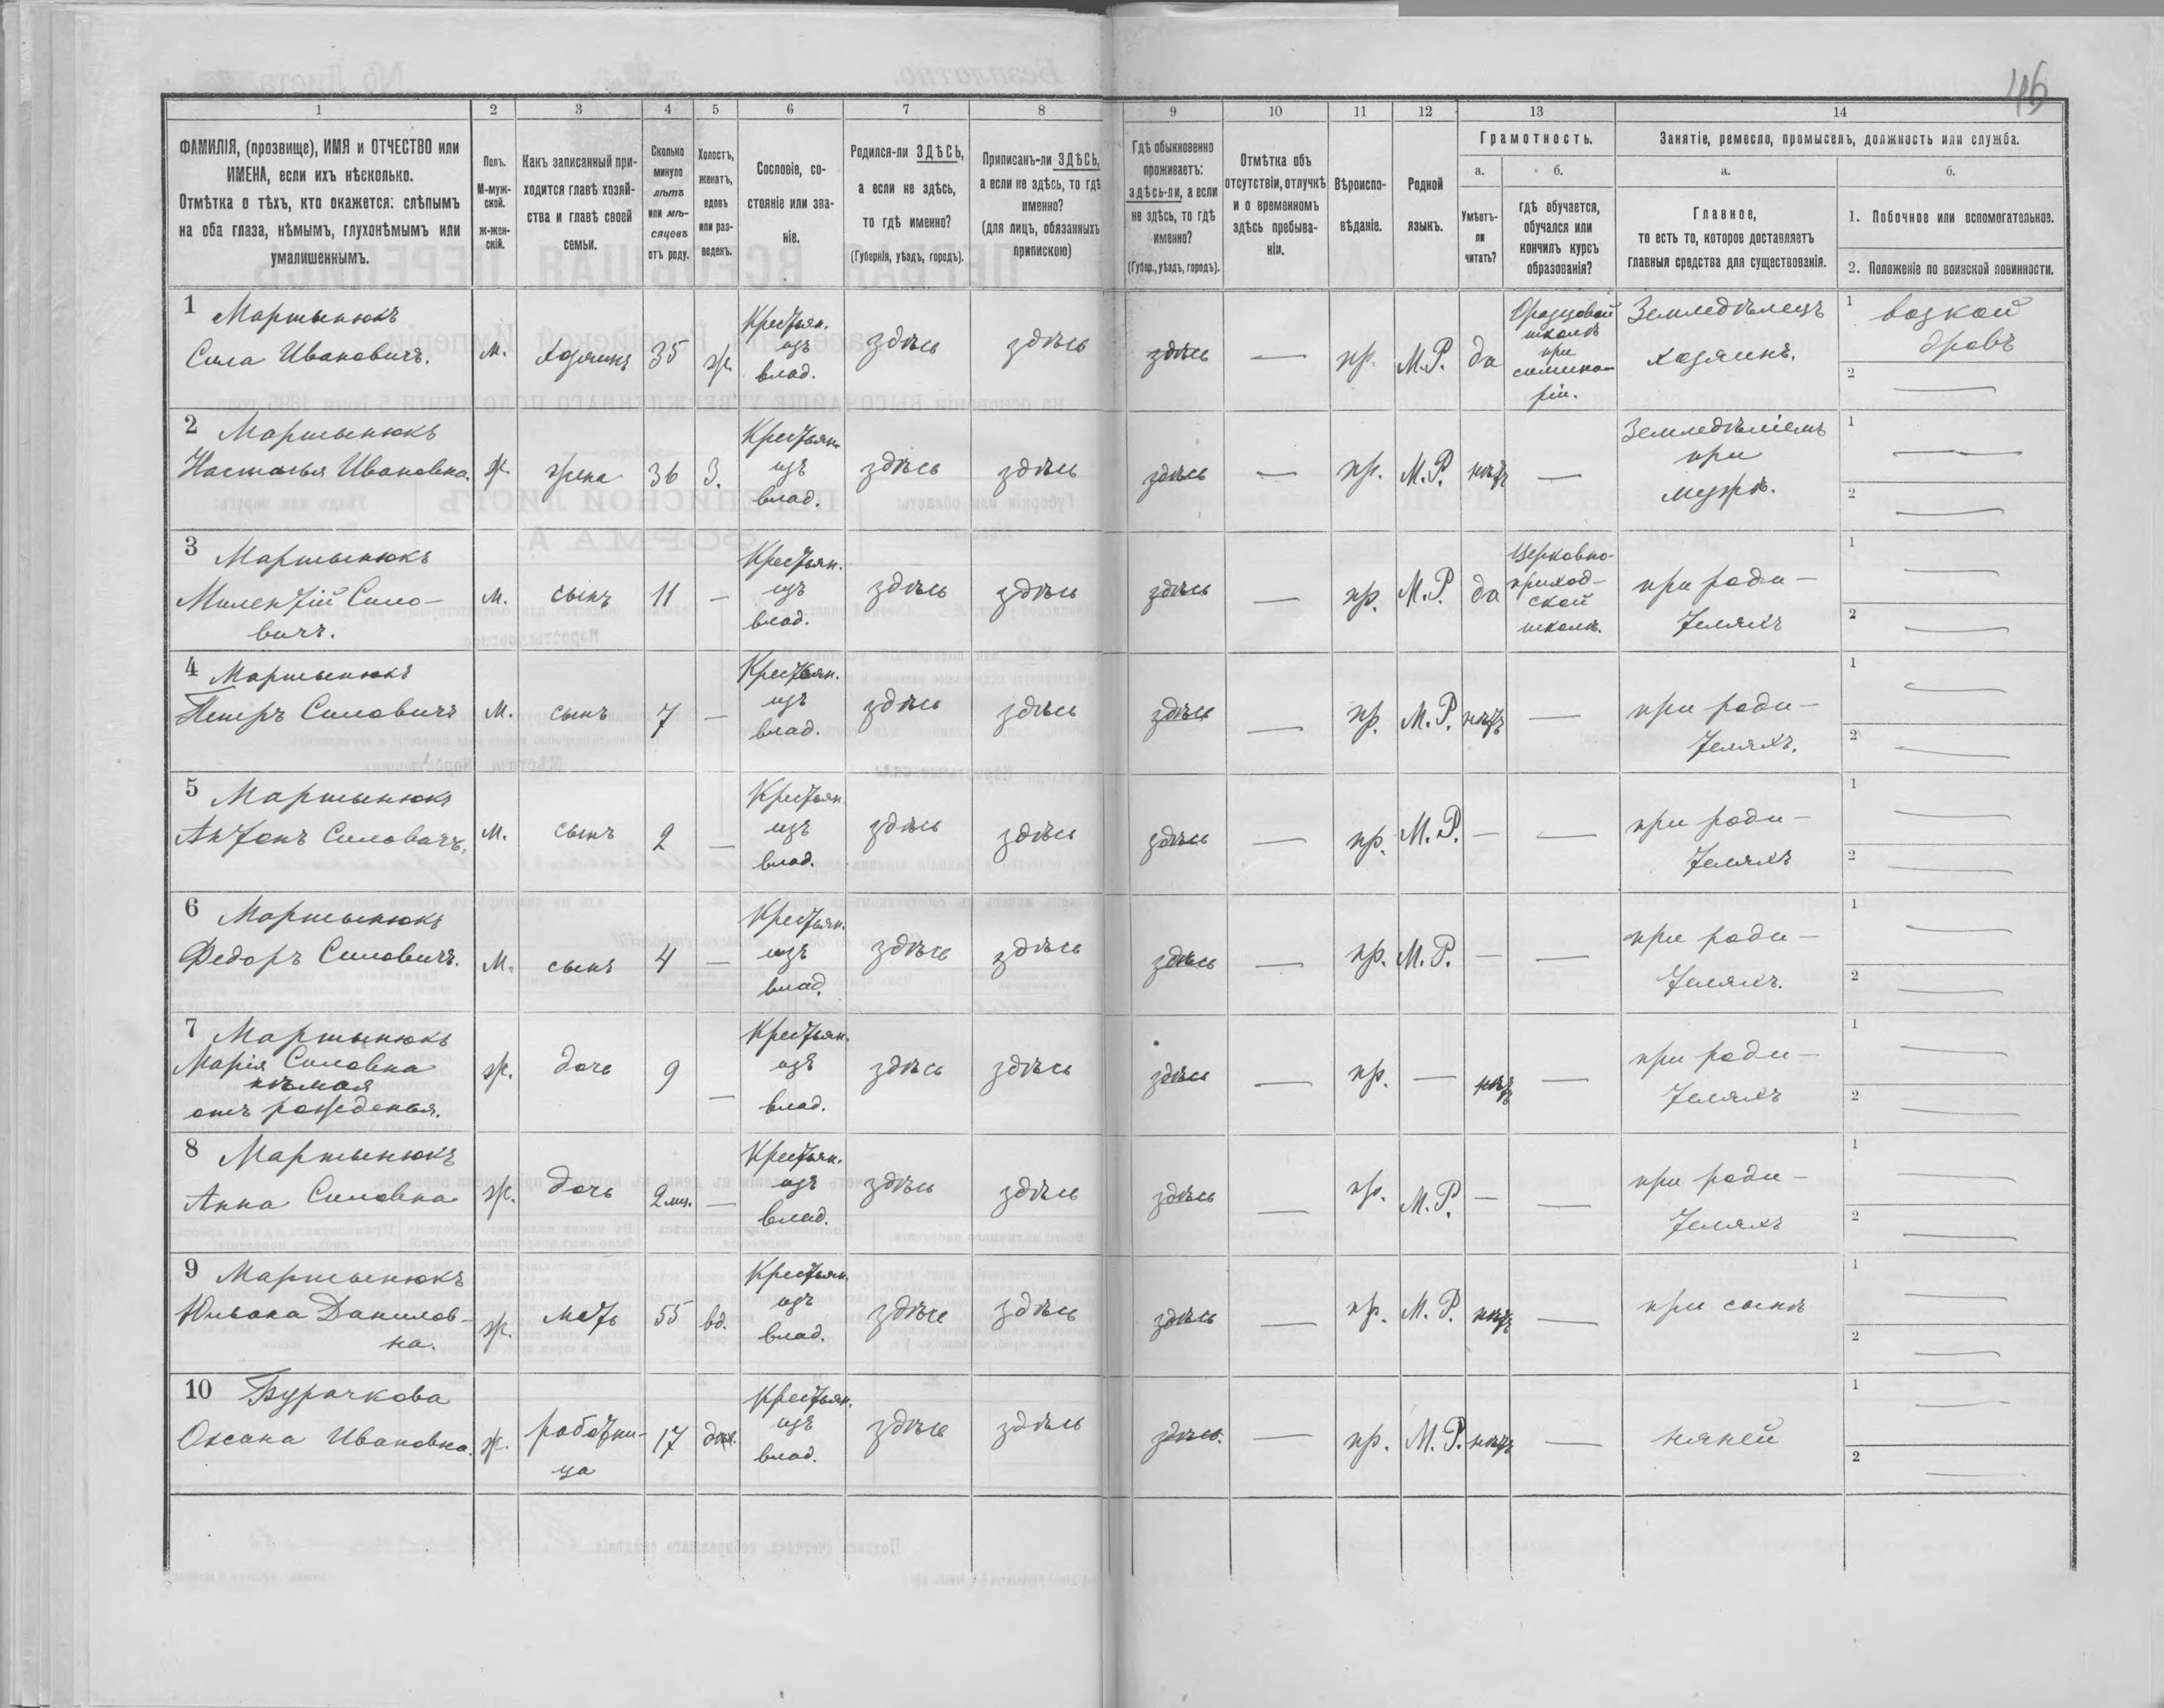 46
1 2 3 4 5 6 7 8 9 10 11 12 13 14
ФАМИЛІЯ, (прозвище), ИМЯ и ОТЧЕСТВО или
ИМЕНА, если ихъ нѣсколько.
Отмѣтка о тѣхъ, кто окажется: слѣпымъ
на оба глаза, нѣмымъ, глухонѣмымъ или
умалишеннымъ.
Полъ.
М-муж-
ской.
Ж-жен-
скій.
Какъ записанный при-
ходится главѣ хозяй-
ства и главѣ своей
семьи.
Сколько
минуло
лѣтъ
или мѣ-
сяцевъ
отъ роду.
Холостъ,
женатъ,
вдовъ
или раз-
веденъ.
Сословіе, со-
стояніе или зва-
ніе.
Родился-ли ЗДѢСЬ,
а если не здѣсь,
то гдѣ именно?
(Губернія, уѣздъ, городъ).
Приписанъ-ли ЗДѢСЬ,
а если не здѣсь, то гдѣ
именно?
(для лицъ, обязанныхъ
припискою)
Гдѣ обыкновенно
проживаетъ:
здѣсь-ли, а если
не здѣсь, то гдѣ
именно?
(Губер., уѣздъ, городъ).
Отмѣтка объ
отсутствіи, отлучкѣ
и о временномъ
здѣсь пребыва-
ніи.
Вѣроиспо-
вѣданіе.
Родной
языкъ.
Грамотность.
а.
Умѣетъ-
ли
читать?
б.
гдѣ обучается,
обучался или
кончилъ курсъ
образованія?
Занятіе, ремесло, промыселъ, должность или служба.
а.
Главное,
то есть то, которое доставляетъ
главныя средства для существованія.
б.
1. Побочное или вспомогательное.
2. Положеніе по воинской повинности.
1 Мартынюкъ
Сила Ивановичъ.
м.
хозяинъ
35
ж.
Крестьян.
изъ
влад.
здѣсь
здѣсь
здѣсь
—
пр.
М.Р.
да
Образцовой
школѣ
при
семина-
ріи.
Земледѣлецъ
хозяинъ.
1 возкой
дровъ
2 —
2 Мартынюкъ
Настасья Ивановна.
ж.
жена
36
З.
Крестьян.
изъ
влад.
здѣсь
здѣсь
здѣсь
—
пр.
М.Р.
нѣтъ
—
Земледѣліемъ
при
мужѣ.
1 —
2 —
3 Мартынюкъ
Милентій Сило-
вичъ.
м.
сынъ
11
—
Крестьян.
изъ
влад.
здѣсь
здѣсь
здѣсь
—
пр.
М.Р.
да
Церковно-
приход-
ской
школѣ.
при роди-
теляхъ
1
2 —
4 Мартынюкъ
Петръ Силовичъ
м.
сынъ
7
—
Крестьян.
изъ
влад.
здѣсь
здѣсь
здѣсь
—
пр.
М.Р.
нѣтъ
—
при роди-
теляхъ.
1 —
2 —
5 Мартынюкъ
Антонъ Силовичъ.
м.
сынъ
2
—
Крестьян
изъ
влад.
здѣсь
здѣсь
здѣсь
—
пр.
М.Р.
—
—
при роди-
теляхъ
1 —
2 —
6 Мартынюкъ
Федоръ Силовичъ.
м.
сынъ
4
—
Крестьян.
изъ
влад.
здѣсь
здѣсь
здѣсь
—
пр.
М.Р.
—
—
при роди-
теляхъ.
1 —
2 —
7 Мартынюкъ
Марія Силовна
нѣмая
отъ рожденья.
ж.
дочь
9
—
Крестьян.
изъ
влад.
здѣсь
здѣсь
здѣсь
—
пр.
—
нѣтъ
—
при роди-
теляхъ
1 —
2 —
8 Мартынюкъ
Анна Силовна
ж.
дочь
2 мц.
—
Крестьян.
изъ
влад.
здѣсь
здѣсь
здѣсь
—
пр.
М.Р.
—
—
при роди-
теляхъ
1 —
2 —
9 Мартынюкъ
Ульяна Данилов-
на.
ж.
мать
55
вд.
Крестьян.
изъ
влад.
здѣсь
здѣсь
здѣсь
—
пр.
М.Р.
нѣтъ
—
при сынѣ
1 —
2 —
10 Бурачкова
Оксана Ивановна.
ж.
работни-
ца
17
дѣв.
Крестьян.
изъ
влад.
здѣсь
здѣсь
здѣсь.
—
пр.
М.Р.
нѣтъ
—
няней
1 —
2 —